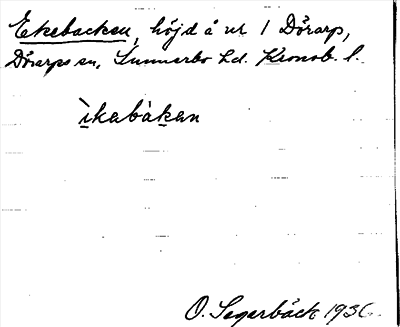 Ekebacken, höjd å nr 1 Dörarp,
Dörarps sn, Sunnerbo hd. Kronob. l.
ìkabàkan
O. Segerbäck 1936.